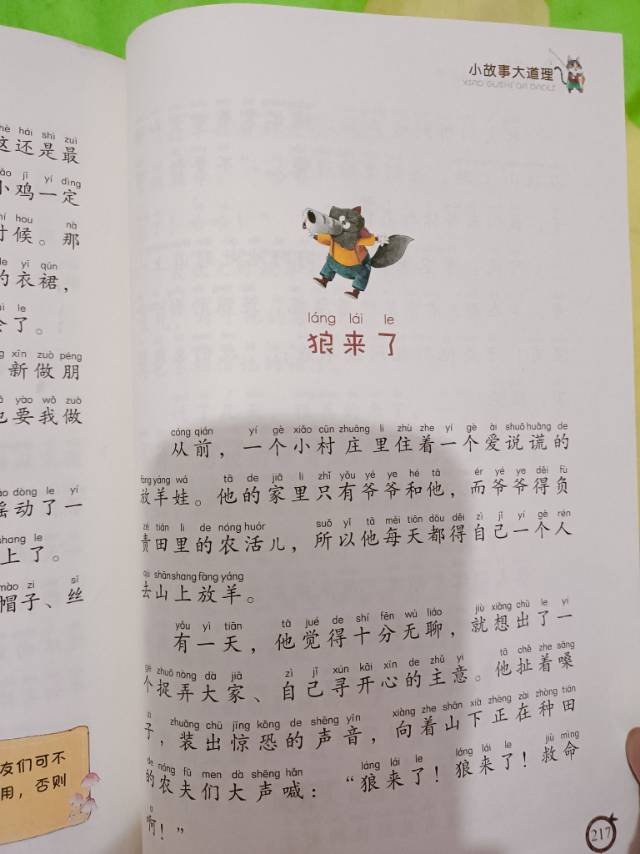 hè hái shì zuì
这还是最
ǎo jī yí dìng
小鸡一定
hí hou nà
时候。那
de yī qún
的衣裙，
ui le
会了。
g xīn zuò péng
新做朋
ě yào wǒ zuò
也要我做
áo dòng le yí
摇动了一
shang le
上了。
mào zi sī
帽子、丝
友们可不
用，否则
小故事大道理
XIAO GUSHI DA DAOLI
láng lái le
狼来了
cóng qián yí gè xiǎo cūn zhuāng li zhù zhe yí gè ài shuō huǎng de
从前，一个小村庄里住着一个爱说谎的
fàng yáng wá tā de jiā li zhǐ yǒu yé ye hé tā ér yé ye děi fù
放羊娃。他的家里只有爷爷和他，而爷爷得负
zé tián li de nóng huór suǒ yǐ tā měi tiān dōu děi zì jǐ yí gè rén
责田里的农活儿，所以他每天都得自己一个人
qù shān shang fàng yáng
去山上放羊。
yǒu yì tiān tā jué de shí fēn wú liáo jiù xiǎng chū le yí
有一天，他觉得十分无聊，就想出了一
gè zhuō nòng dà jiā zì jǐ xún kāi xīn de zhǔ yi tā chě zhe sǎng
个捉弄大家、自己寻开心的主意。他扯着嗓
zi zhuāng chū jīng kǒng de shēng yīn xiàng zhe shān xià zhèng zài zhòng tián
子，装出惊恐的声音，向着山下正在种田
de nóng fū men dà shēng hǎn láng lái le láng lái le jiù mìng
的农夫们大声喊：“狼来了！狼来了！救命
a
啊！”
217